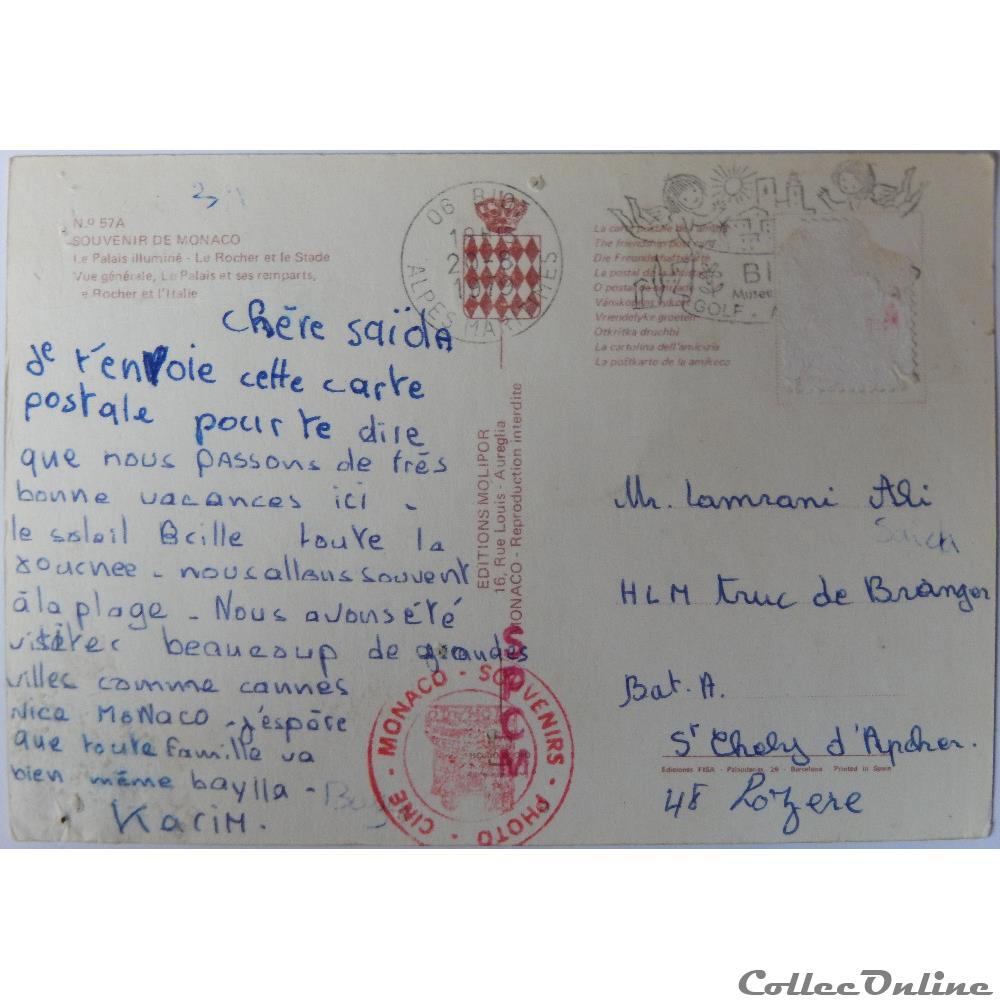 N.º 57A
SOUVENIR DE MONACO
Le Palais illuminé - Le Rocher et le Stade
Vue générale, Le Palais et ses remparts,
Le Rocher et l'Italie
chère saïda
Je t'envoie cette carte
postale pour te dire
que nous passons de très
bonne vacances ici -
le soleil Brille toute la
journee - nous allons souvent
à la plage - Nous avons été
visiter beaucoup de grandes
villes comme cannes
Nice Monaco - j'espère
que toute famille va
bien même baylla -
Karim.
06 BIOT
1979
ALPES MARITIMES
La carte postale de l'amitié
The friendship post card
Die Freundschaftskarte
La postal de la amistad
O postal de amizade
Vriendelyke groeten
Otkritka druchbi
La cartolina dell'amicizia
La poŝtkarto de la amikeco
BI
GOLF
EDITIONS MOLIPOR
16, Rue Louis-Aureglia
MONACO - Reproduction interdite
SPCM
MONACO - SOUVENIRS - PHOTO - CINE -
Mr. Lamrani Ali
HLM truc de Branger
Bat. A.
St Chely d'Apcher.
Ediciones FISA - Palaudarias, 26 - Barcelona Printed in Spain
48 Lozere
CollecOnline